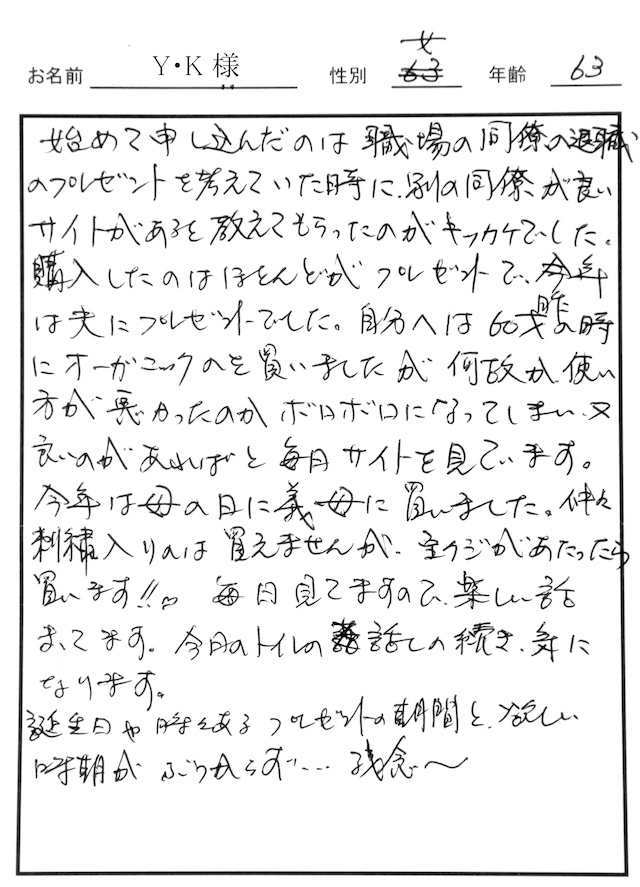 お名前 Y・K 様 性別 女 年齢 63
始めて申し込んだのは職場の同僚の退職
のプレゼントを考えていた時に、別の同僚が良い
サイトがあると教えてもらったのがキッカケでした。
購入したのはほとんどがプレゼントで、今年
は夫にプレゼントでした。自分へは60才の時
にオーガニックのを買いましたが何故か、使い
方が悪かったのかボロボロになってしまい、又
良いのがあればと毎日サイトを見ています。
今年は母の日に義母に買いました。仲々
刺繍入りのは買えませんが、宝クジがあたったら
買います!! 毎日見てますので、楽しい話
まってます。今日のトイレの話しの続き、気に
なります。
誕生日や時々あるプレゼントの期間と、欲しい
時期がぶつからず… 残念〜